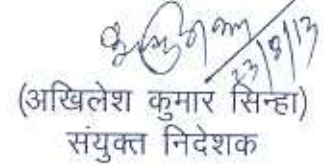 23/8/13
(अखिलेश कुमार सिन्हा)
संयुक्त निदेशक